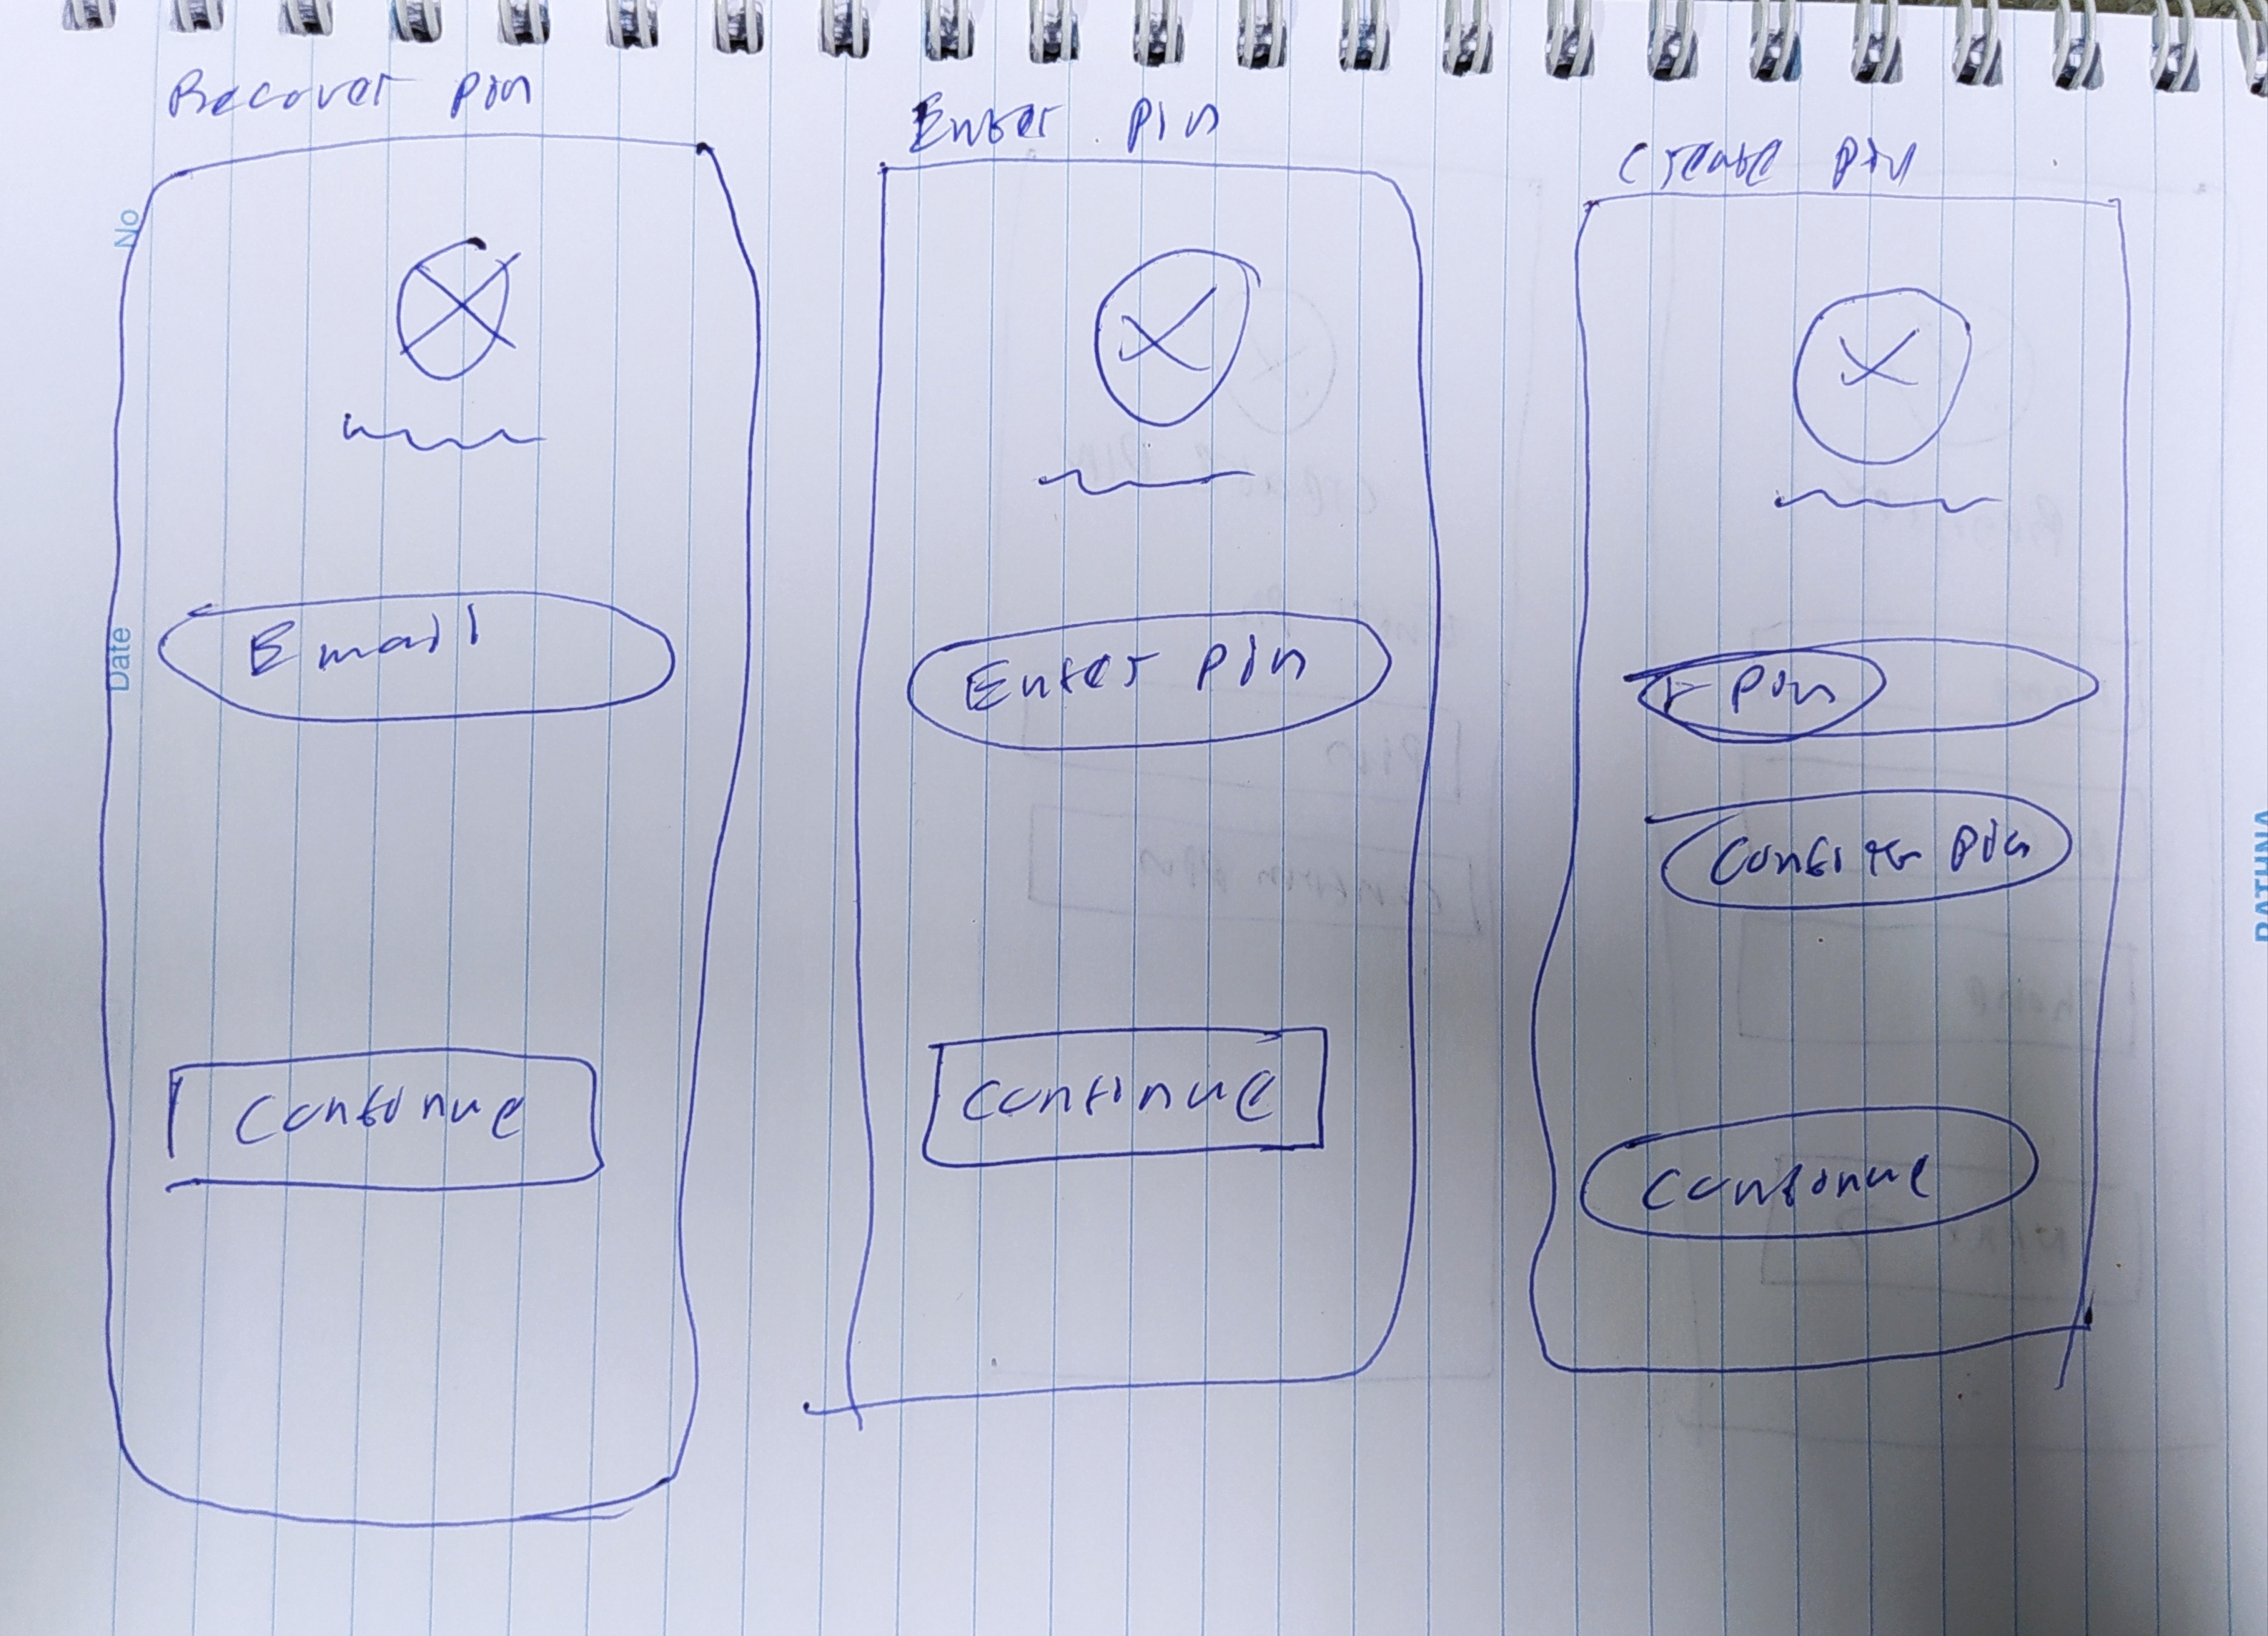 Recover pin
Email
Continue
Enter pin
Enter pin
Continue
Create pin
Pin
Confirm pin
Continue
No
Date
RATHNA